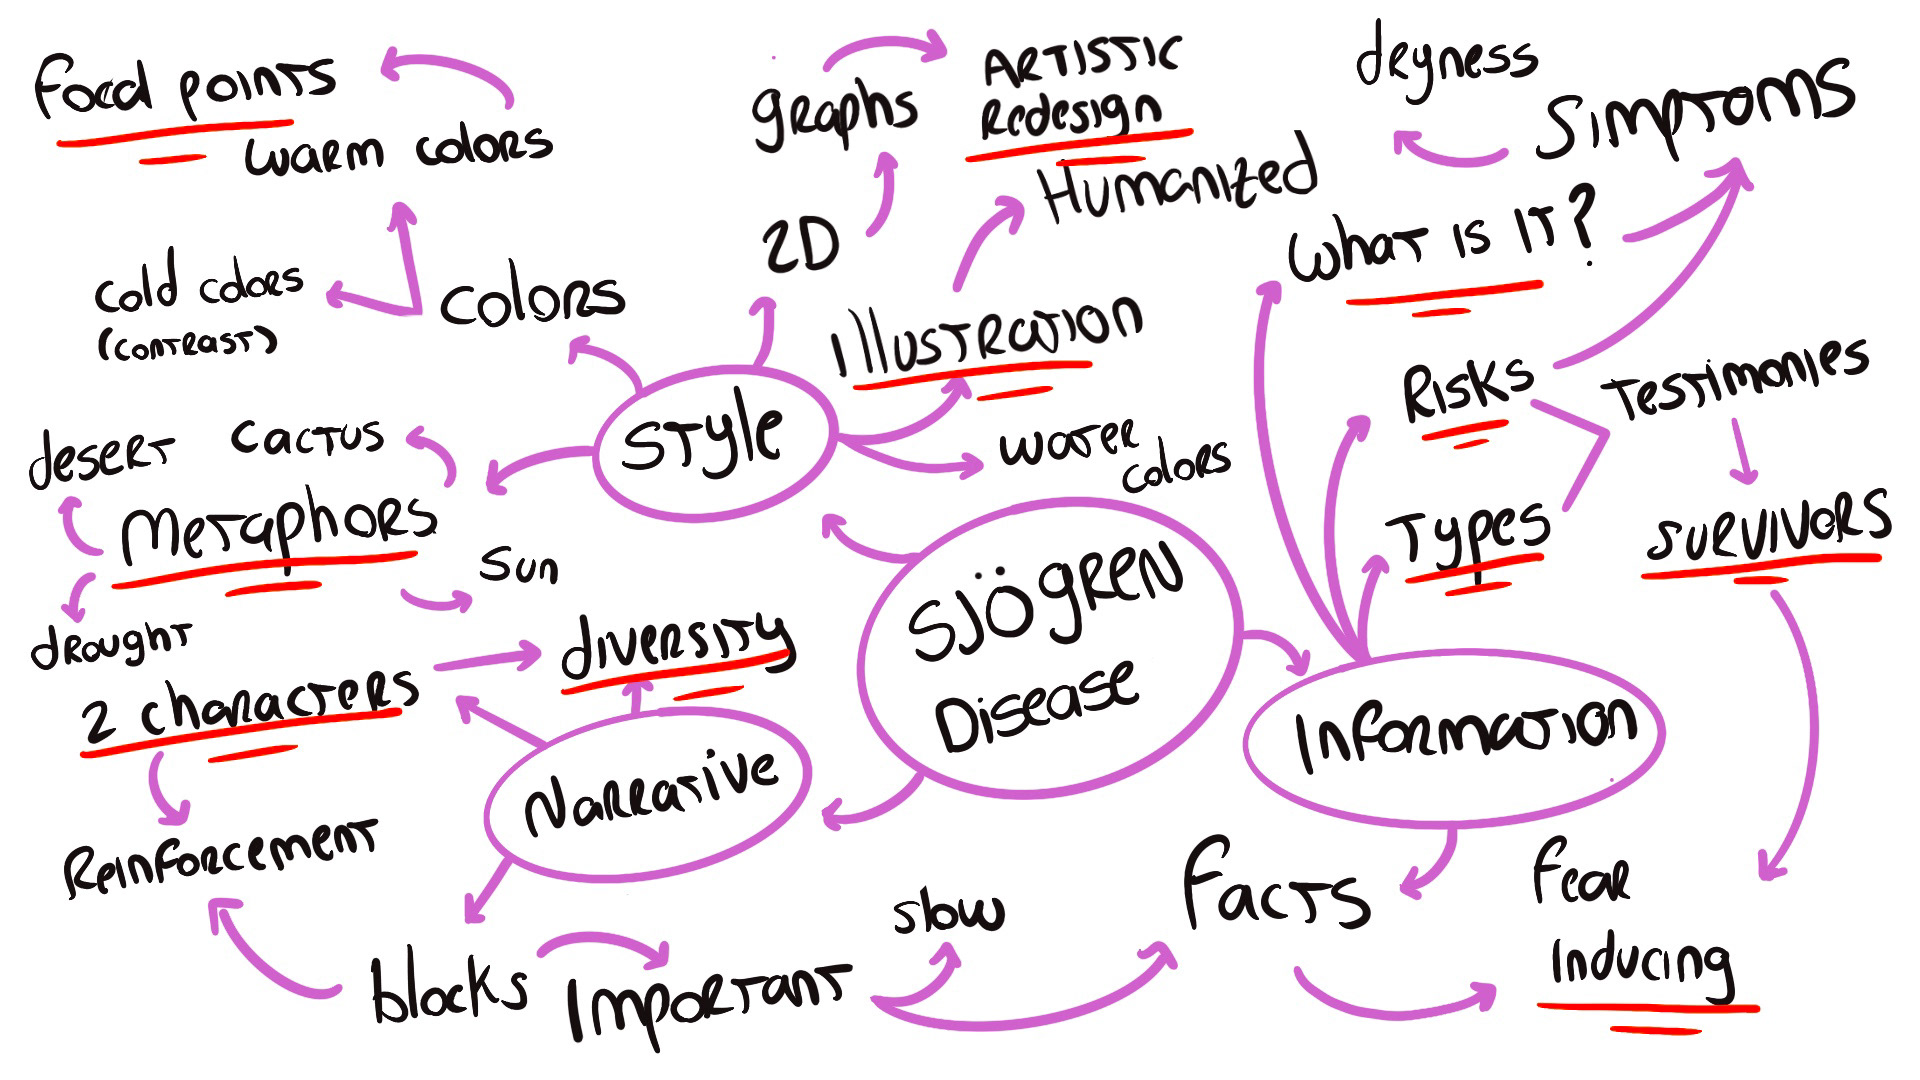 focal points
warm colors
cold colors
(contrast)
colors
graphs
Artistic
Redesign
2D
Humanized
Illustration
Style
Water
colors
desert
cactus
Metaphors
Sun
drought
2 characters
diversity
Narrative
Reinforcement
blocks
Important
slow
Sjögren
Disease
dryness
Simptoms
What is it?
Risks
Testimonies
Types
survivors
Information
Facts
Fear
Inducing